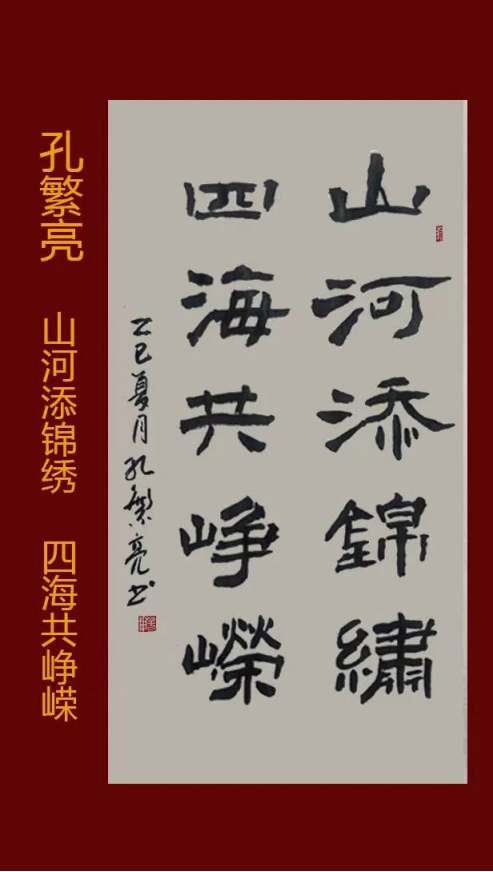 孔繁亮
山河添锦绣 四海共峥嵘
山河添錦繡
四海共崢嶸
乙巳夏月孔繁亮书